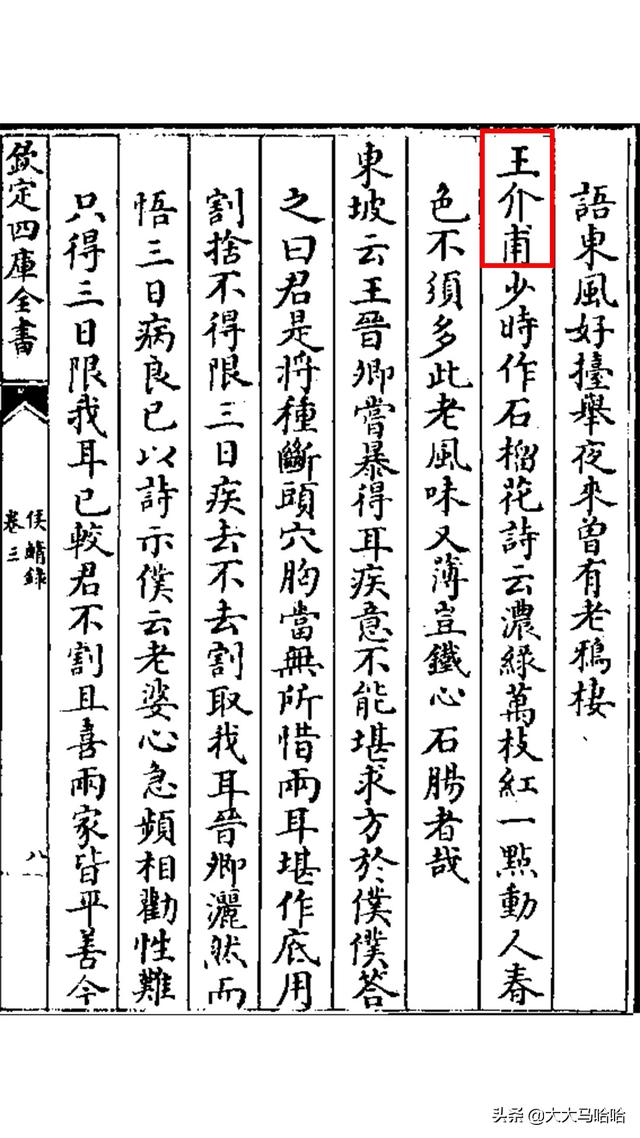 語東風好擡舉夜來曽有老鴉棲
王介甫少時作石榴花詩云濃緑萬枝紅一點動人春
色不須多此老風味又薄豈鐵心石腸者哉
東坡云王晉卿嘗暴得耳疾意不能堪求方於僕僕答
之曰君是將種斷頭穴胸當無所惜兩耳堪作底用
割捨不得限三日疾去不去割取我耳晉卿灑然而
悟三日病良已以詩示僕云老婆心急頻相勸性難
只得三日限我耳已較君不割且喜兩家皆平善今
欽定四庫全書
侯鯖錄
卷三
八
头条 @大大马哈哈